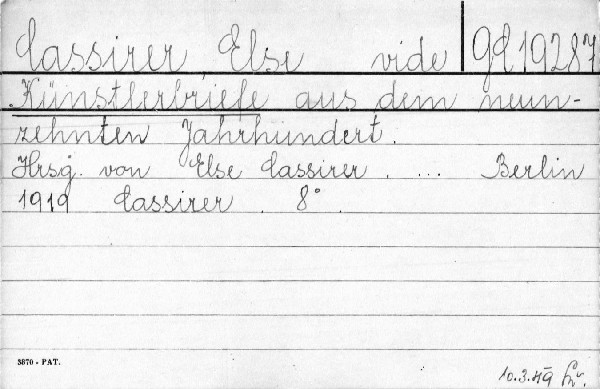 Cassirer, Else vide
Künstlerbriefe aus dem neun-
zehnten Jahrhundert.
Hrsg. von Else Cassirer. ... Berlin
1919 Cassirer. 8°.
3870 - PAT.
10.3.49